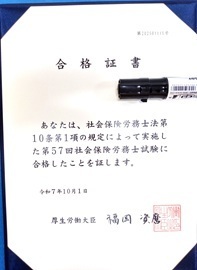 合格証書
あなたは、社会保険労務士法第
10条第1項の規定によって実施し
た第57回社会保険労務士試験に
合格したことを証します。
令和7年10月1日
厚生労働大臣 福岡 資麿